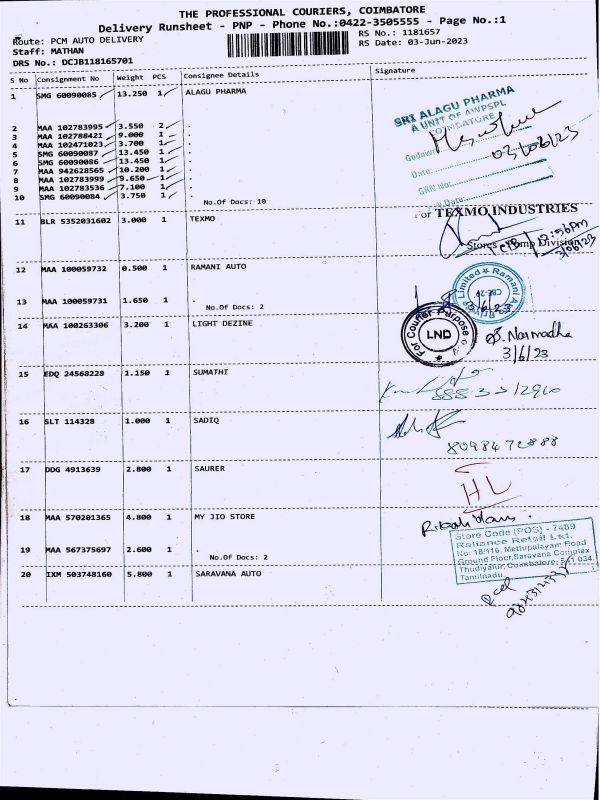 THE PROFESSIONAL COURIERS, COIMBATORE
Delivery Runsheet - PNP - Phone No.:0422-3505555 - Page No.:1
Route: PCM AUTO DELIVERY RS No.: 1181657
Staff: MATHAN RS Date: 03-Jun-2023
DRS No.: DCJB118165701
S No Consignment No Weight PCS Consignee Details Signature
1 SMG 60090085 13.250 1 ALAGU PHARMA
SRI ALAGU PHARMA
A UNIT OF AWPSPL
COIMBATORE
Godown
Date: 03/06/23
GRN No:
2 MAA 102783995 3.550 2 .
3 MAA 102788421 9.000 1 .
4 MAA 102471023 3.700 1 .
5 SMG 60090087 13.450 1 .
6 SMG 60090086 13.450 1 .
7 MAA 942628565 10.200 1 .
8 MAA 102783999 9.650 1 .
9 MAA 102783536 7.100 1 .
10 SMG 60090084 3.750 1 .
No.Of Docs: 10
11 BLR 5352031602 3.000 1 TEXMO
For TEXMO INDUSTRIES
12:56pm
Stores Pump Division
3/06/23
12 MAA 100059732 0.500 1 RAMANI AUTO
13 MAA 100059731 1.650 1 .
No.Of Docs: 2
14 MAA 100263306 3.200 1 LIGHT DEZINE
For Courier Purpose
LND
S. Narmadha
3/6/23
15 EDQ 24568228 1.150 1 SUMATHI
16 SLT 114328 1.000 1 SADIQ
8098472888
17 DDG 4913639 2.800 1 SAURER
HL
18 MAA 570201365 4.800 1 MY JIO STORE
19 MAA 567375697 2.600 1 .
No.Of Docs: 2
Store Code (POS) - 7489
Reliance Retail Ltd.
No: 18/116, Mettupalayam Road
Ground Floor,Saravana Complex
Thudiyalur, Coimbatore- 641 034.
Tamilnadu.
20 IXM 503748160 5.800 1 SARAVANA AUTO